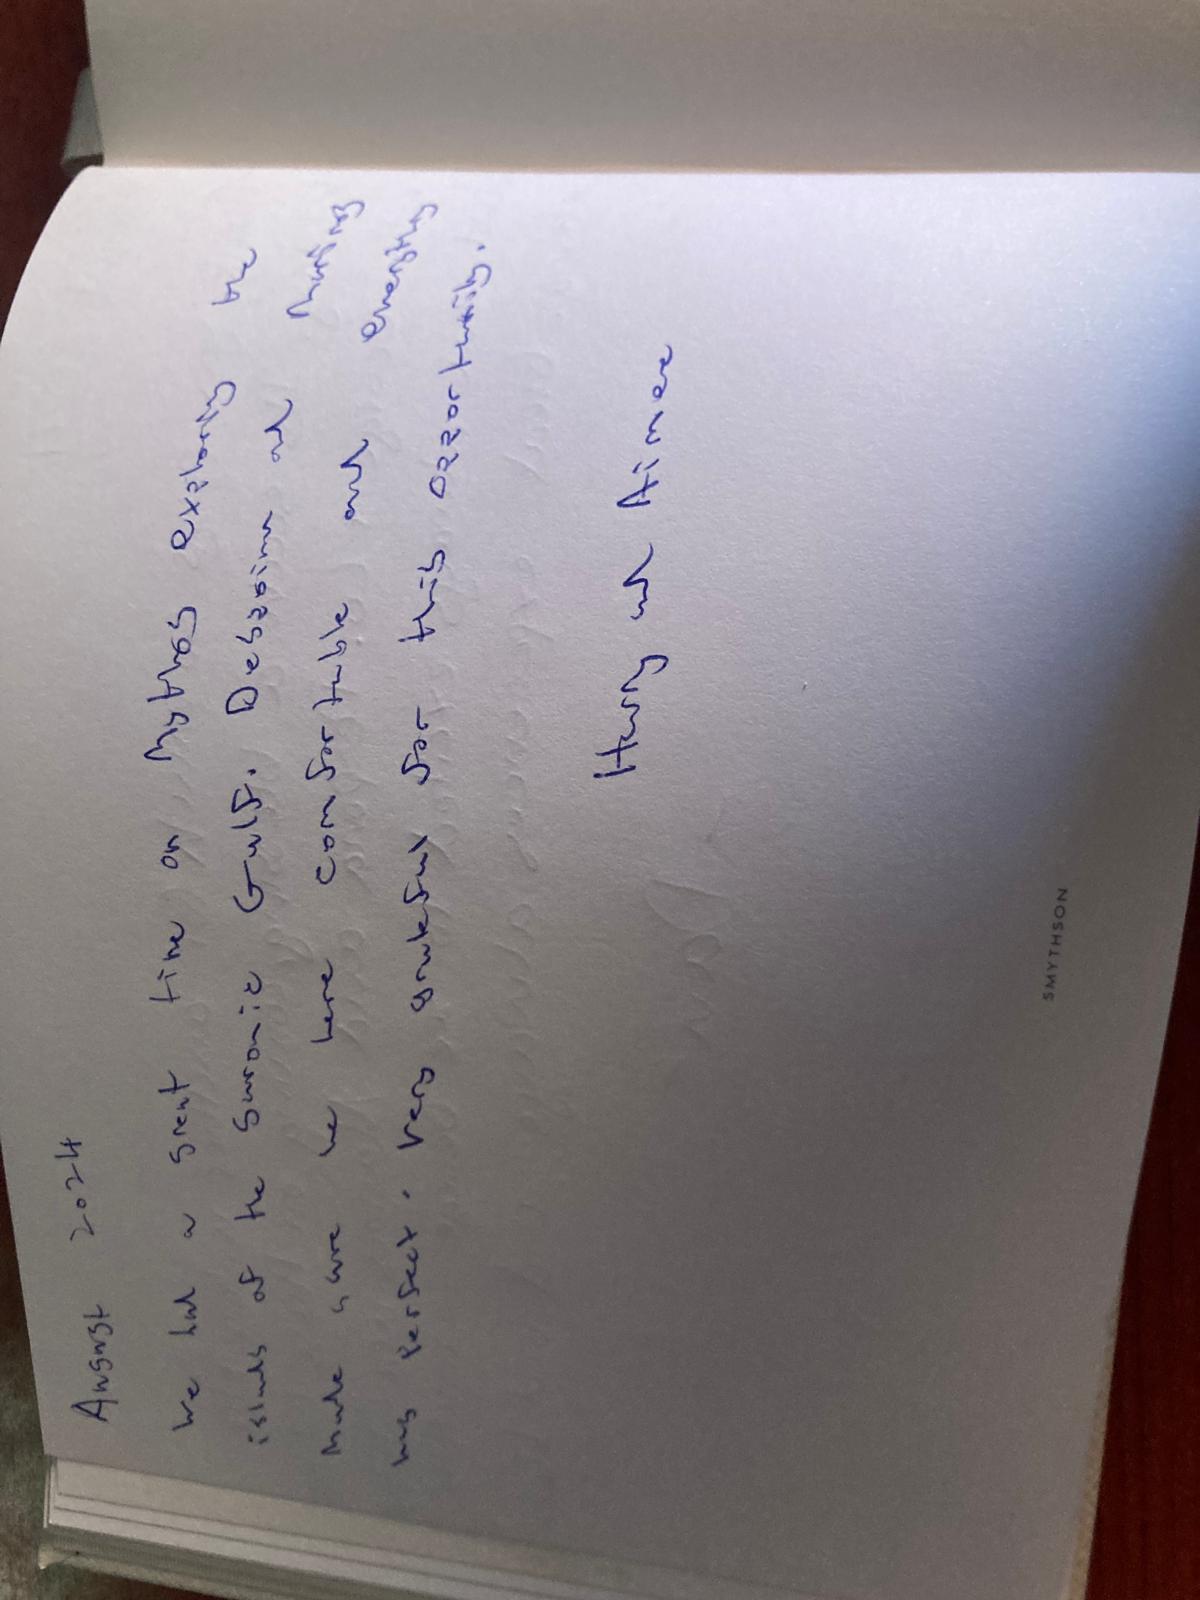 August 2024
We had a great time on Mythos exploring the
islands of the Saronic Gulf. Despoina and
made sure we were comfortable and everything
was perfect. Very grateful for this opportunity.
Harry and Aimee
SMYTHSON